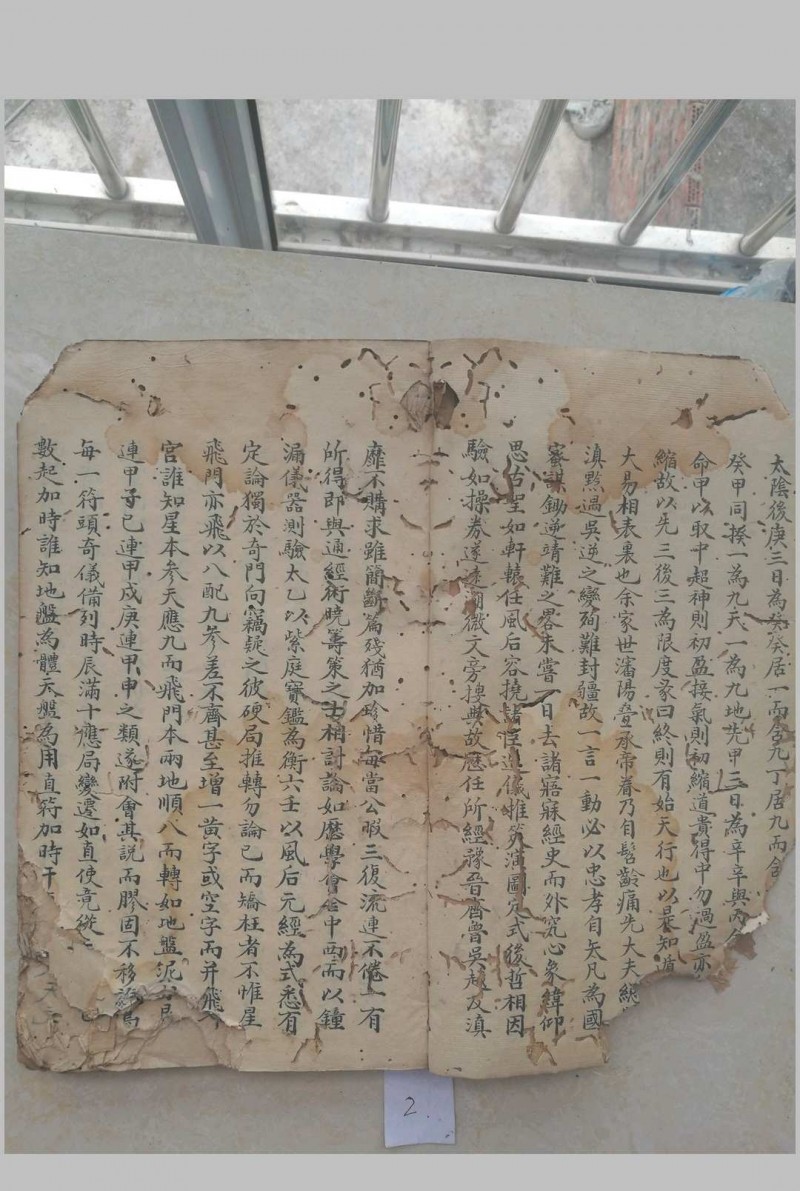 太陰後庚三日為癸癸居一而含九丁居九而含
癸甲同揆一為九天一為九地先甲三日為辛辛與丙合
命甲以取中超神則初盈接氣則初縮道貴得中勿過盈亦
縮故以先三後三為限度彖曰終則有始天行也以是知遁
大易相表裏也余家世瀋陽疊承帝眷乃自髫齡痛先大夫總
滇黔過吳逆之變殉難封疆故一言一動必以忠孝自矢凡為國
蜜謀鋤逆靖難之畧未嘗一日去諸寤寐經史而外究心象緯仰
思古聖如軒轅任風后容撓
儀惟
演圖定式後哲相因
驗如操券遂遠溯微文旁搜典故應任所經豫晉齊魯吳越及滇
靡不購求雖簡斷篇殘猶加珍惜每當公暇三復流連不倦一有
所得即與通經術曉籌策之士相討論如曆學會合中西而以鐘
漏儀器測驗太乙以紫庭寶鑑為衡六壬以風后元經為式悉有
定論獨於奇門向竊疑之彼硬局推轉勿論已而矯枉者不惟星
飛門亦飛以八配九參差不齊甚至增一黃字或空字而并飛
宮誰知星本參天應九而飛門本兩地順八而轉如地盤
連甲子己連甲戌庚連甲申之類遂附會其說而膠固不移
每一符頭奇儀備列時辰滿十應局變遷如直使竟從
數起加時誰知地盤為體天盤為用直符加時干
2.